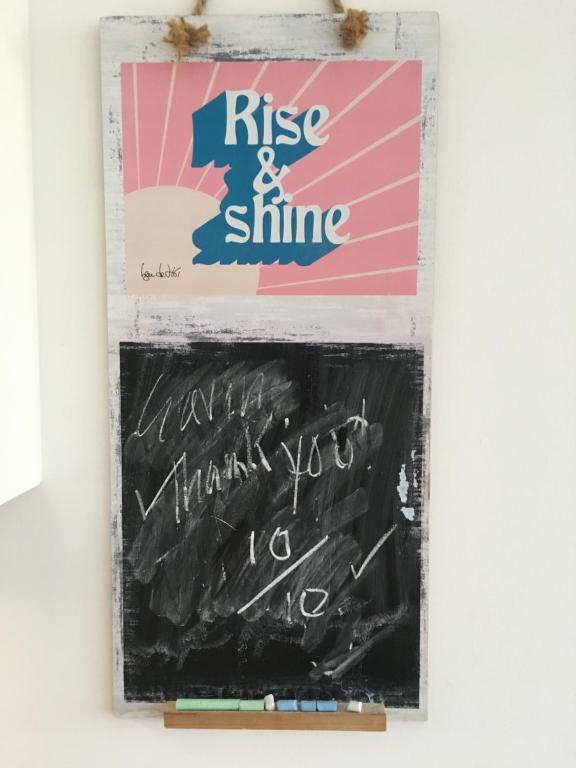 Rise
&
shine
Gavin
Thank you!
10
/
10